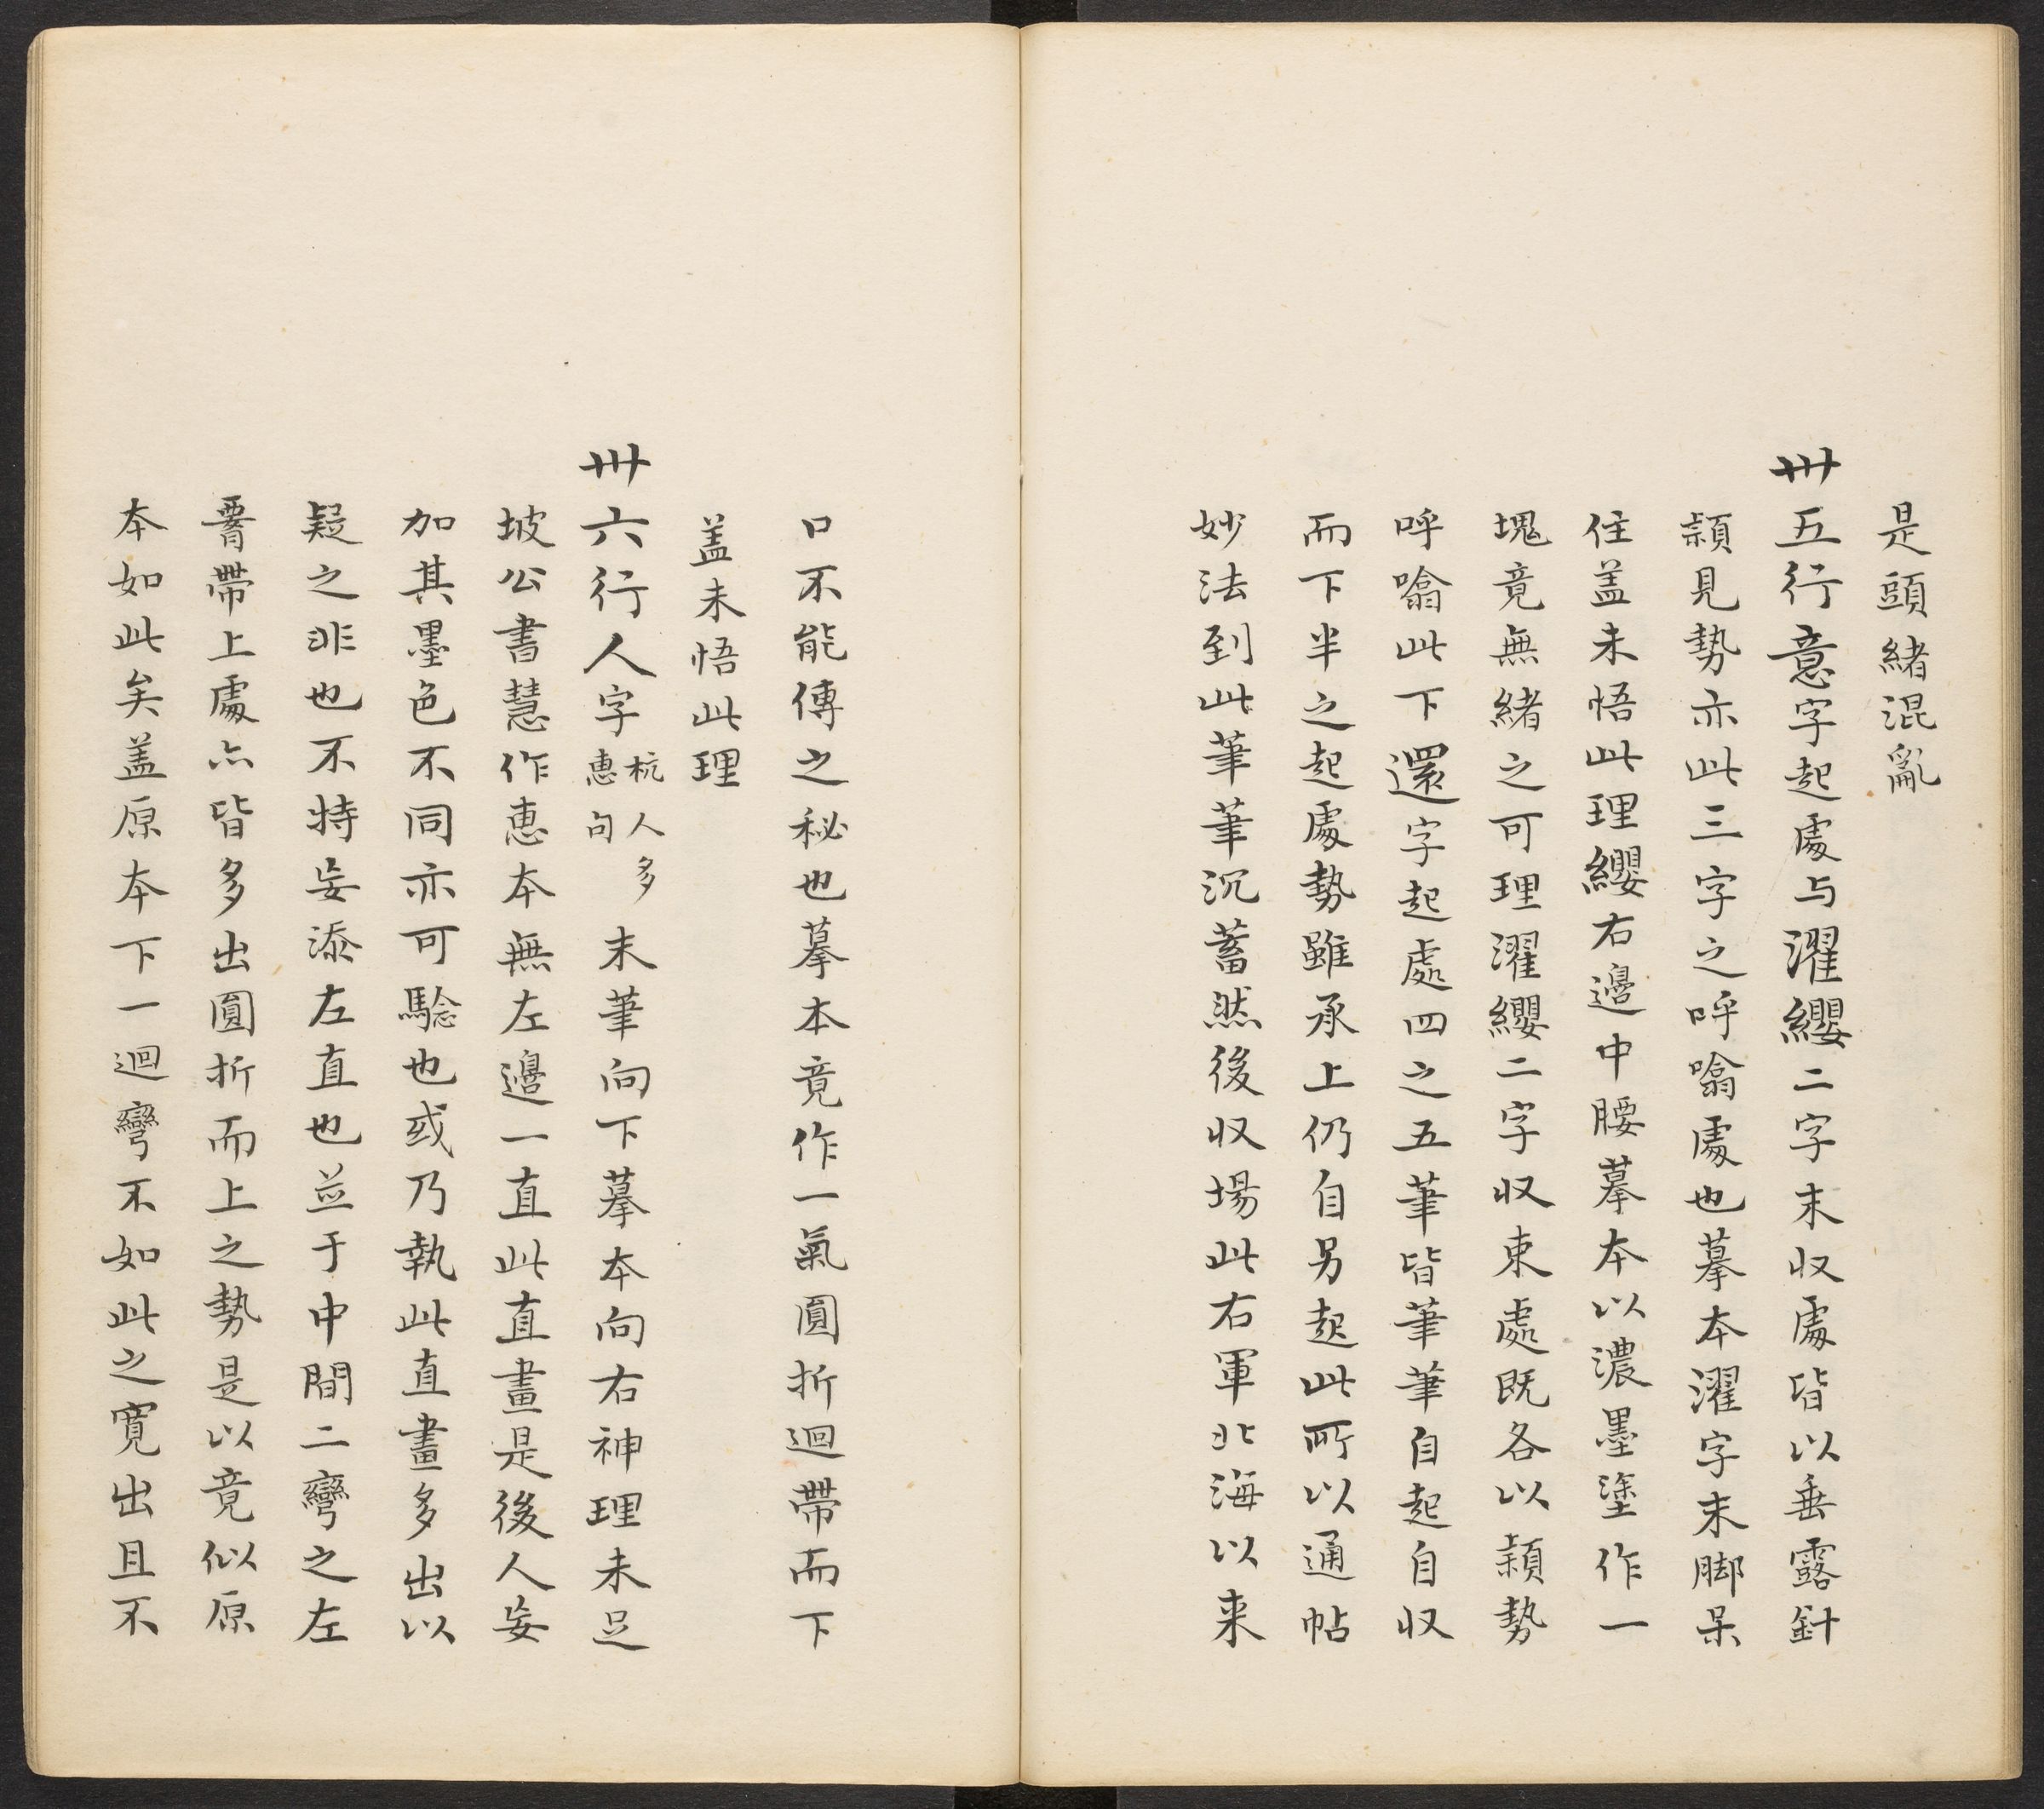 是頭緒混亂
卅五行意字起處与濯纓二字末収處皆以垂露針
頴見勢亦此三字之呼噏處也摹本濯字末脚呆
住盖未悟此理纓右邊中腰摹本以濃墨塗作一
塊竟無緒之可理濯纓二字収束處既各以頴勢
呼噏此下還字起處四之五筆皆筆筆自起自収
而下半之起處勢雖承上仍自另起此所以通帖
妙法到此筆筆沉蓄然後収場此右軍北海以来
口不能傳之秘也摹本竟作一氣圓折迴帶而下
盖未悟此理
卅六行人字杭人多惠句末筆向下摹本向右神理未足
坡公書慧作惠本無左邊一直此直畫是後人妄
加其墨色不同亦可驗也或乃執此直畫多出以
疑之非也不特妄添左直也並于中間二彎之左
脣帶上處亦皆多出圓折而上之勢是以竟似原
本如此矣盖原本下一迴彎不如此之寬出且不